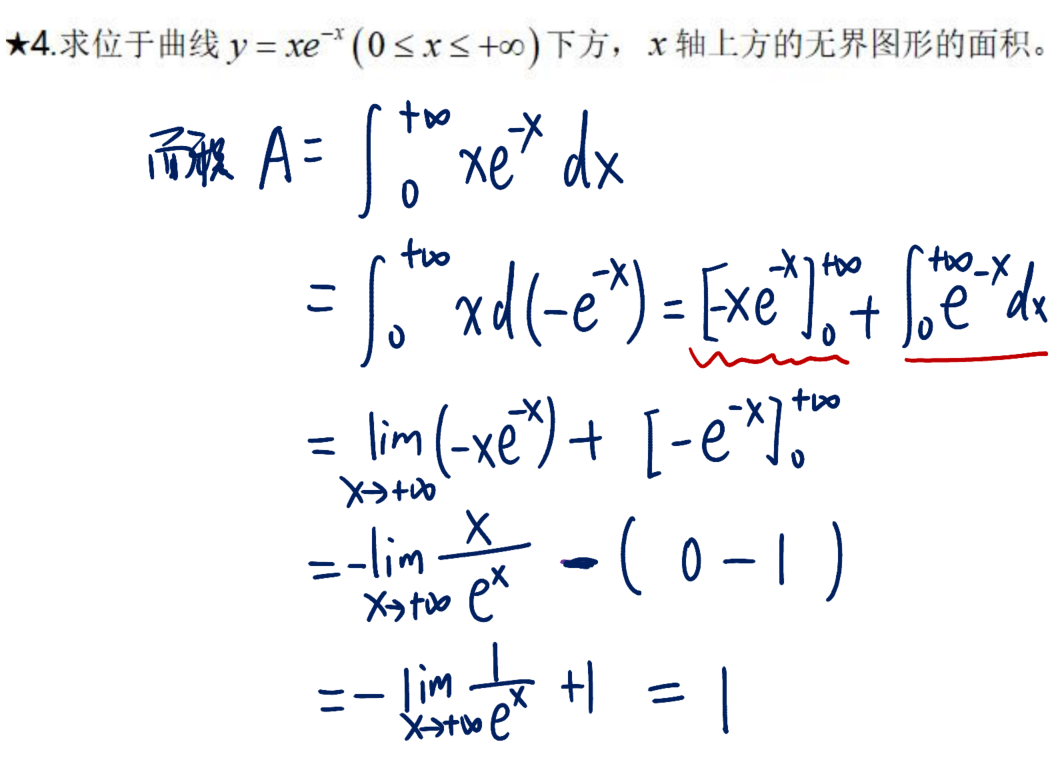 ★4.求位于曲线 y = xe^{-x} (0 ≤ x ≤ +∞) 下方， x 轴上方的无界图形的面积。
面积 A = ∫_0^{+∞} xe^{-x} dx
= ∫_0^{+∞} x d(-e^{-x}) = [-xe^{-x}]_0^{+∞} + ∫_0^{+∞} e^{-x} dx
= lim_{x→+∞} (-xe^{-x}) + [-e^{-x}]_0^{+∞}
= -lim_{x→+∞} x/e^x - ( 0 - 1 )
= - lim_{x→+∞} 1/e^x + 1 = 1